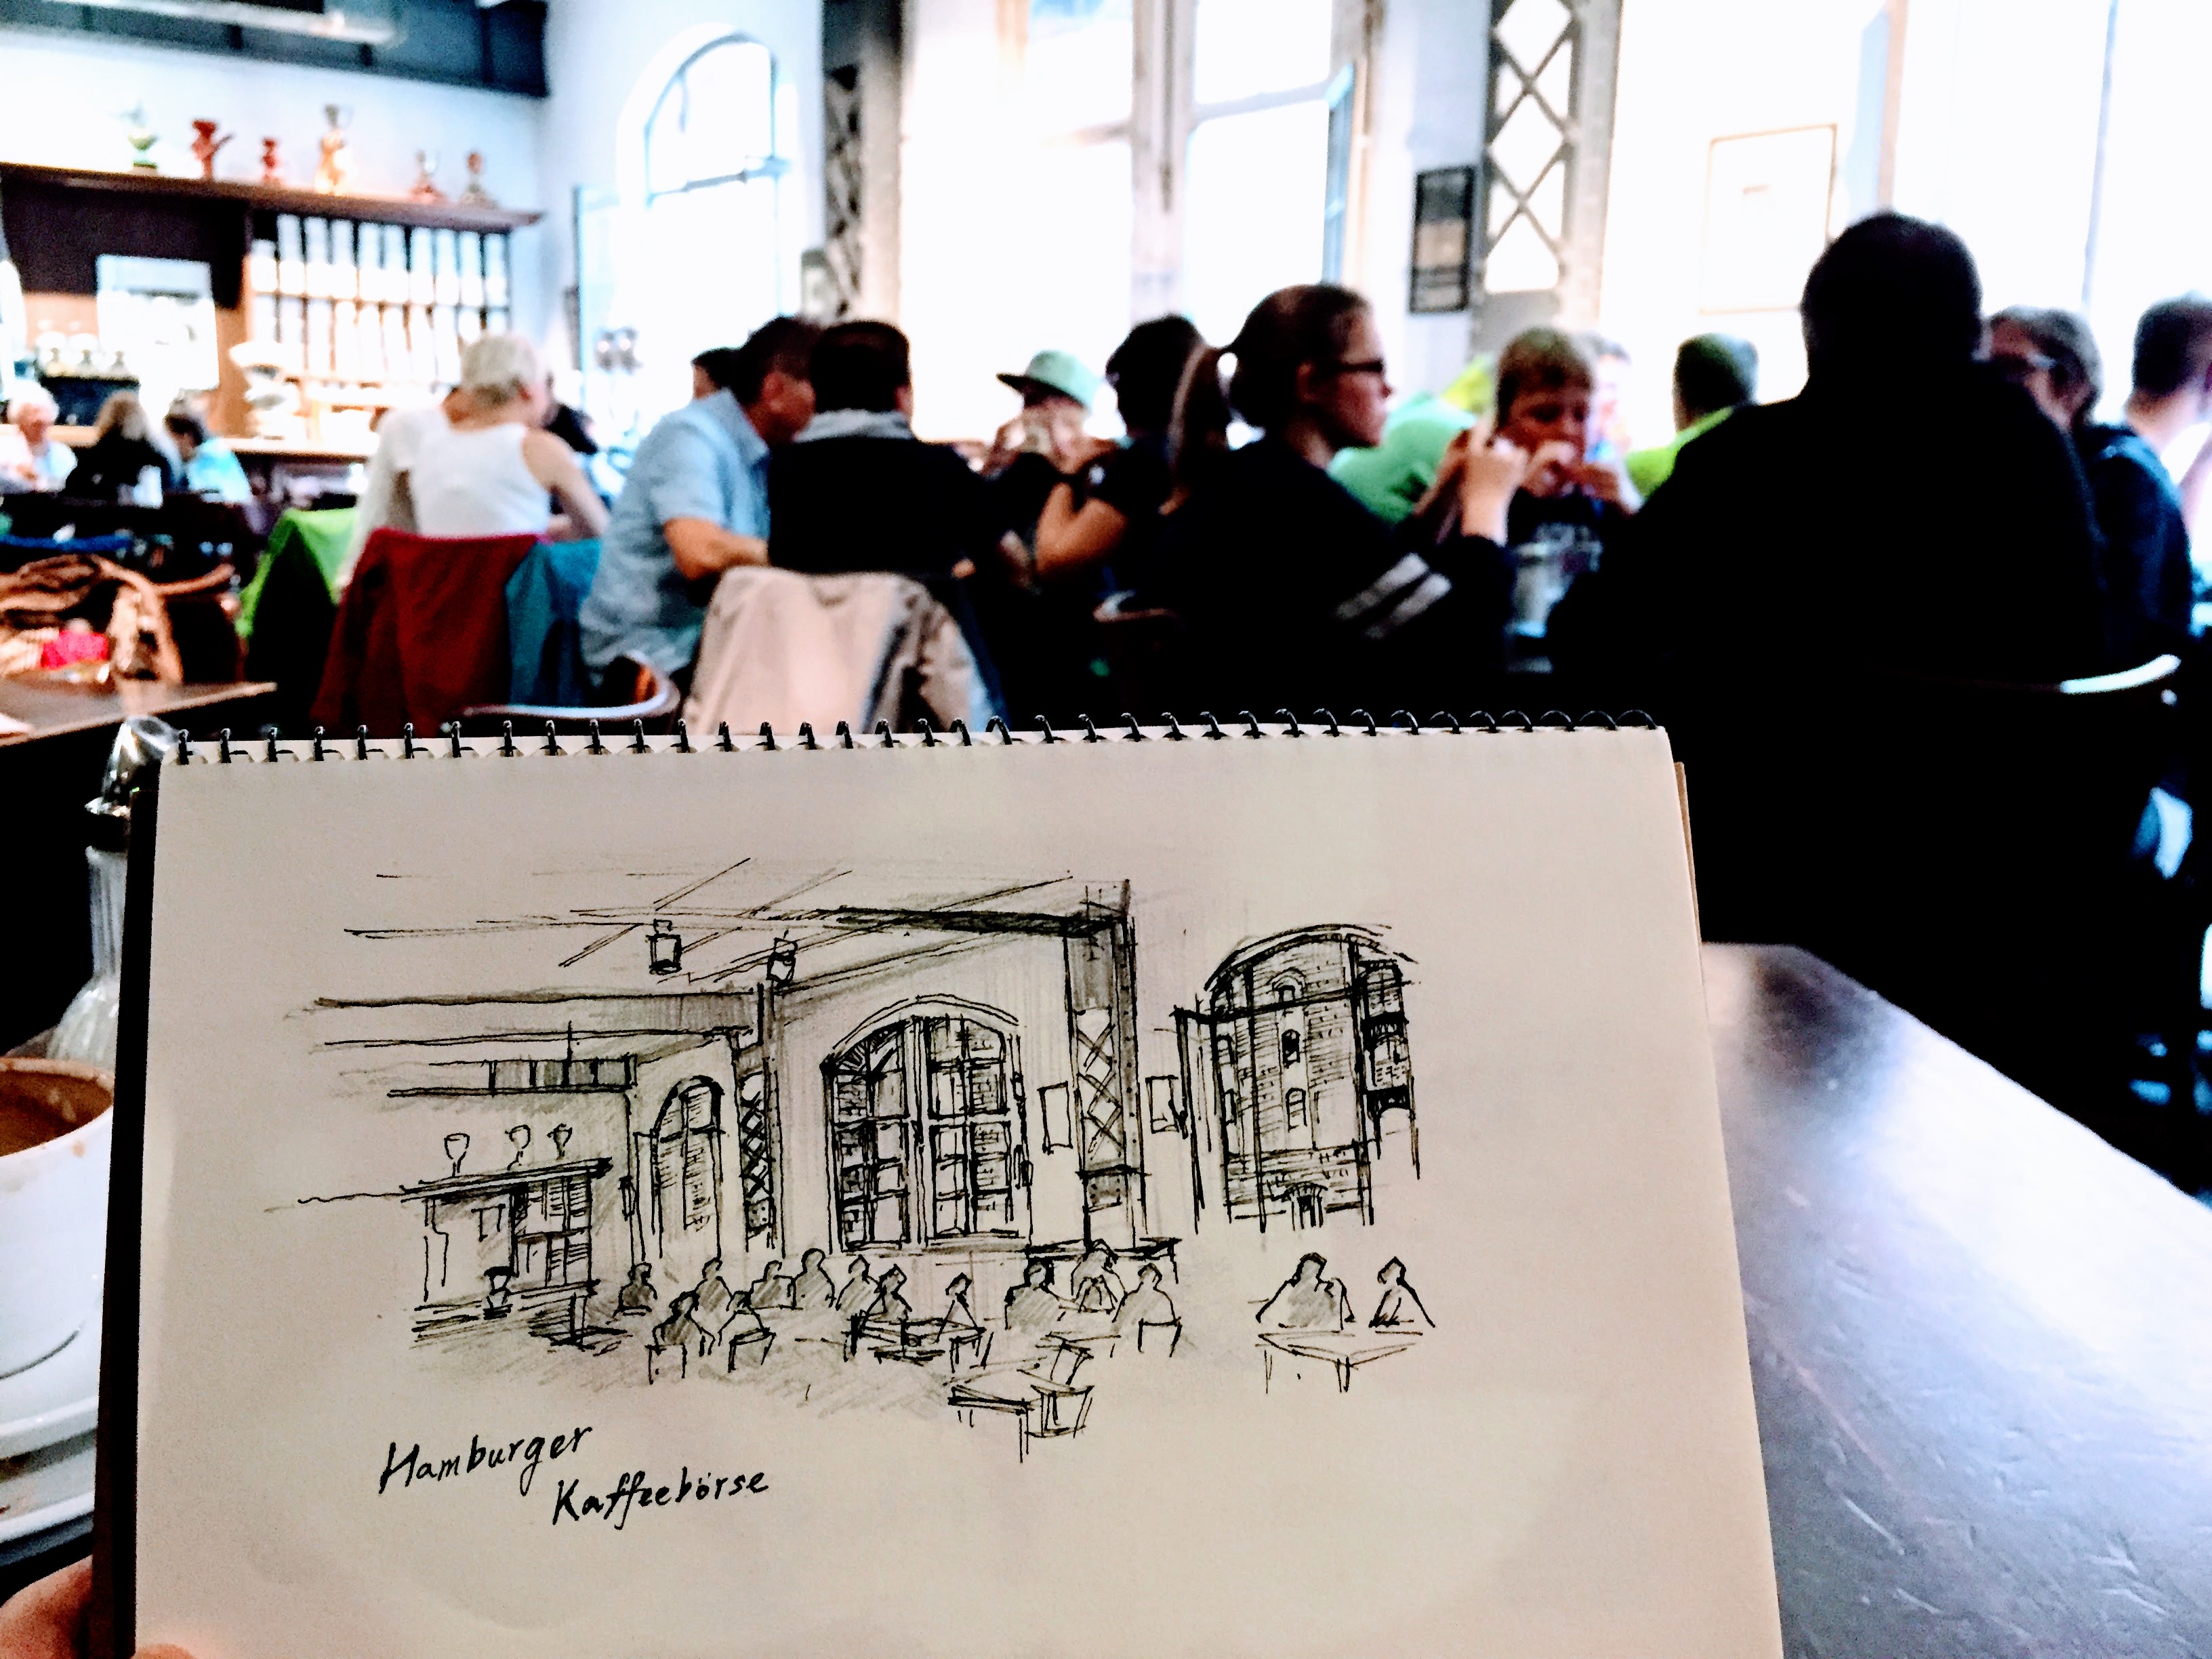 Hamburger
Kaffeebörse